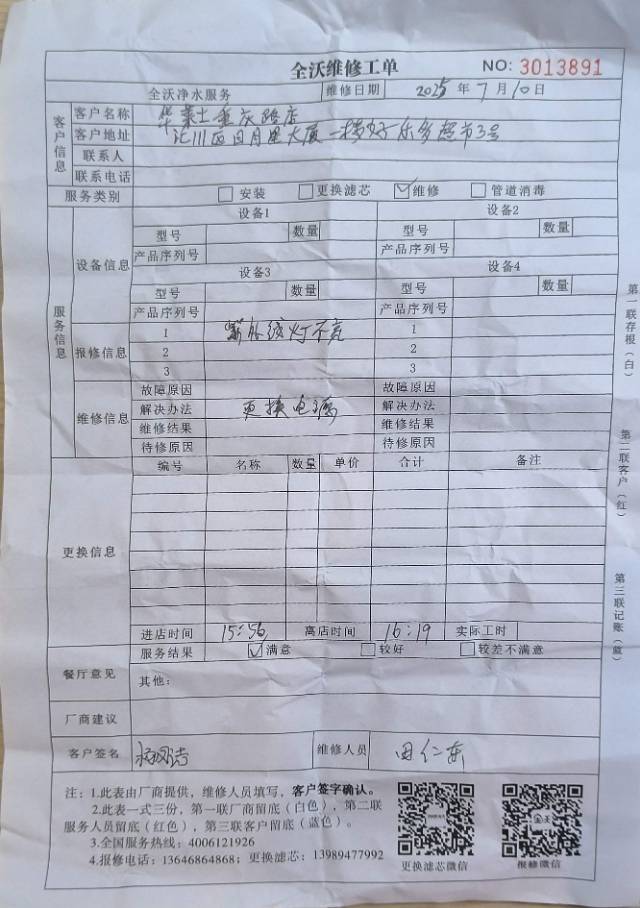 全沃维修工单 NO: 3013891
全沃净水服务 维修日期 2025 年 7 月 10 日
客户信息
客户名称 华莱士重庆路店
客户地址 汇川区日月星大厦一楼好乐多超市3号
联系人
联系电话
服务类别 安装 更换滤芯 维修 管道消毒
服务信息
设备信息
设备1 设备2
型号 数量 型号 数量
产品序列号 产品序列号
设备3 设备4
型号 数量 型号 数量
产品序列号 产品序列号
报修信息
1 紫外线灯不亮 1
2 2
3 3
维修信息
故障原因 故障原因
解决办法 更换电源 解决办法
维修结果 维修结果
待修原因 待修原因
更换信息
编号 名称 数量 单价 合计 备注
进店时间 15:56 离店时间 16:19 实际工时
餐厅意见
服务结果 满意 较好 较差不满意
其他:
厂商建议
客户签名 维修人员 田仁东
注: 1.此表由厂商提供，维修人员填写，客户签字确认。
2.此表一式三份，第一联厂商留底（白色），第二联
服务人员留底（红色），第三联客户留底（蓝色）。
3.全国服务热线: 4006121926
4.报修电话: 13646864868; 更换滤芯: 13989477992
更换滤芯微信 报修微信
第一联存根（白）
第二联客户（红）
第三联记账（蓝）